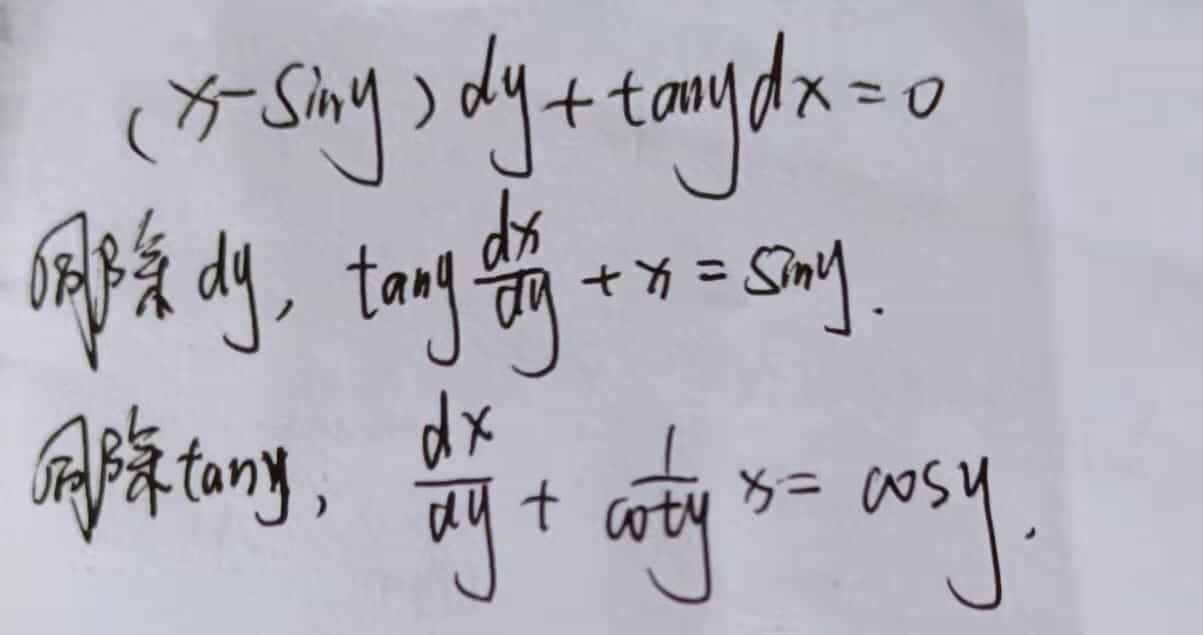 (x-siny)dy+tanydx=0
同除dy, tany dx/dy +x=siny.
同除tany, dx/dy + 1/coty x= cosy.